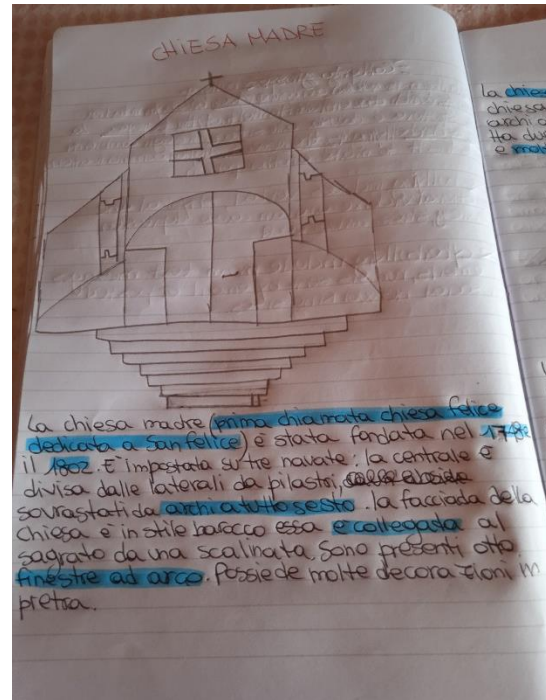 CHIESA MADRE
La chiesa madre (prima chiamata chiesa felice
dedicata a San felice) è stata fondata nel 178
il 1802. E' impostata su tre navate: la centrale è
divisa dalle laterali da pilastri,
sovrastati da archi a tutto sesto. la facciada della
Chiesa è in stile barocco essa e collegada al
sagrato da una scalinata. Sono presenti otto
finestre ad arco. Possiede molte decorazioni in
pietra.
La chies
chiesa
archi a
Ha du
e mol